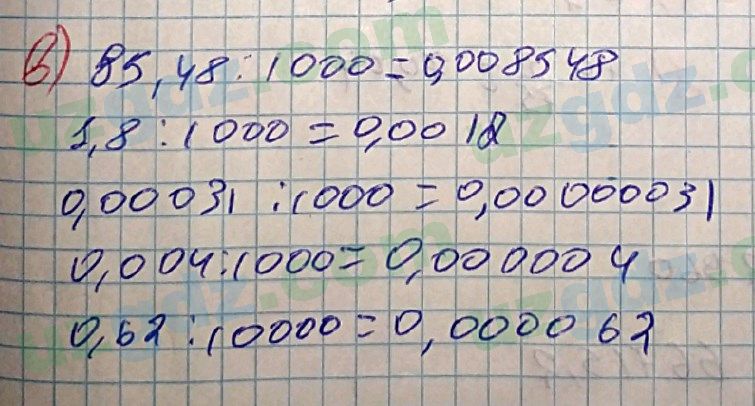 в) 85,48 : 1000 = 0,008548
1,8 : 1000 = 0,0018
0,00031 : 1000 = 0,00000031
0,004 : 1000 = 0,000004
0,62 : 10000 = 0,000062
uzgdz.com